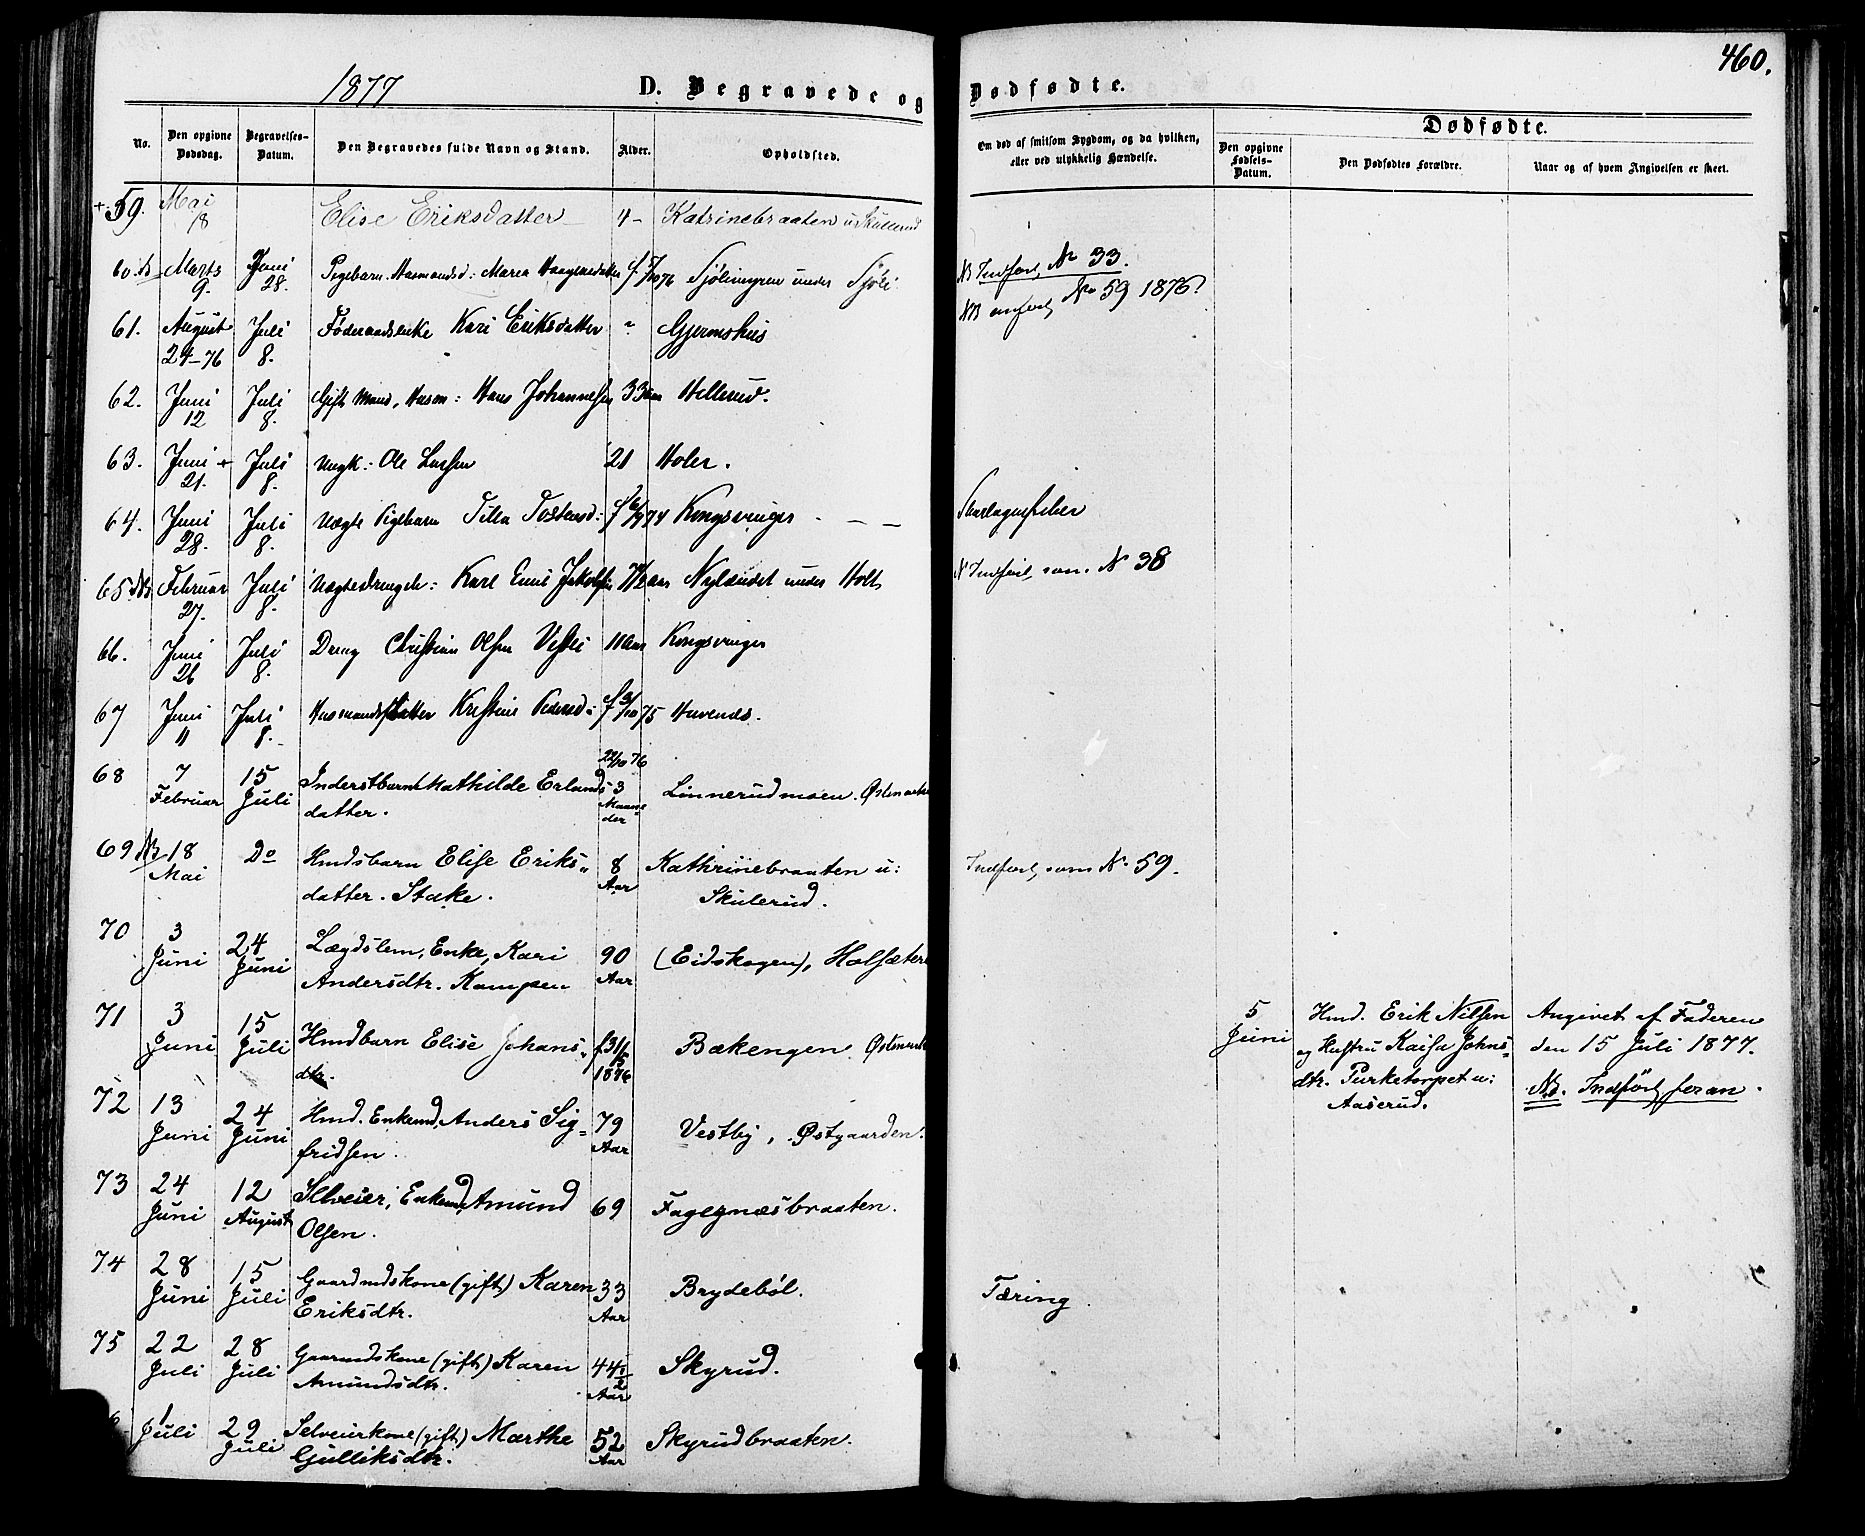 460.
1877 D. Begravede og Dødfødte.
No. Den opgivne Dødsdag. Begravelses-Datum. Den Begravedes fulde Navn og Stand. Alder. Opholdsted. Om død af smitsom Sygdom, og da hvilken, eller ved ulykkelig Hændelse. Dødfødte.
Den opgivne Fødsels-Datum. Den Dødfødtes Forældre. Naar og af hvem Angivelsen er skeet.
+ 59. Mai 18 Elise Eriksdatter 4 - Katrinebraaten u Skullerud
60. Nb Marts 9. Juni 28. Pigebarn Husmandsd: Maren f. Sjölimyren under Sjöli NB Indført No 33.
NB anført No 59 1876?
61. August 24-76 Juli 8. Føderaadsenke Kari Eriksdatter " Gjermshus
62. Juni 12 Juli 8. Gift Mand, Husm: Hans Johannessen 33 aar Hellerud.
63. Juni + 21. Juli 8. Ungk: Ole Larsen 21 Holer.
64. Juni 28. Juli 8. Uægte Pigebarn Tilla Tostensd: f 74 Kongsvinger - - - Skarlagensfeber
65. Nb Februar 27. Juli 8. Uægte Karl Emil Jakobsen aar Nylændet under Holt N Indført som N 38
66. Juni 26 Juli 8. Dreng Christian Olsen Vestli 11 aar Kongsvinger
67 Juni 11 Juli 8. Husmandsdatter Kristine Pedersd: f 3/10 75 Hurends.
22/10 76
68 7 Februar 15 Juli Inderstbarn Mathilde Erlands 3 Maaneder Linnerudmoen. Østmarka
datter.
69 Nb 18 Mai Do Hmdsbarn Elise Eriks- 8 Aar Kathrinebraaten u: Indført som N. 59.
datter. Stake. Skulerud.
70 3 Juni 24 Juni Lægdslem, Enke, Kari 90 Aar (Eidskogen), Holsæter
Andersdtr. Kampen
71 3 Juni 15 Juli Hmdbarn Elise Johans- f. 31/5 1876 Bækengen. Østmark
dtr.
5 Juni Hmd. Erik Nilsen Angivet af Faderen
og Hustru Kaisa Johns- den 15 Juli 1877.
dtr. Purketorpet u: Nb. Indført foran.
Aaserud.
72 13 Juni 24 Juni Hmd. Enkemd, Anders Sig- 79 Aar Vestby, Østgaarden.
fridsen.
73 24 Juni 12 August Selveier, Enkemd, Amund 69 Fagernæsbraaten.
Olsen.
74 28 Juni 15 Juli Gaardmdskone (gift) Karen 33 Aar Brydeböl. Tæring.
Eriksdtr.
75 22 Juli 28 Juli Gaarmdskone (gift) Karen 44 1/2 Aar Skyrud.
Amundsdtr.
1 Juli 29 Juli Selveierkone (gift) Marthe 52 Aar Skyrudbraaten.
Gulliksdtr.